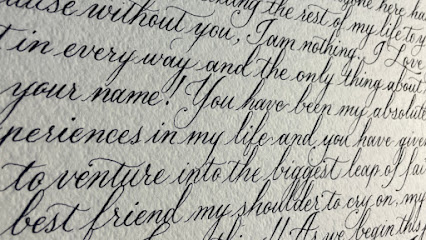 the rest of my life to y
without you, I am nothing. I Love
t in every way and the only thing about
your name! You have been my absolute
periences in my life and you have given
to venture into the biggest leap of fai
best friend my shoulder to cry on, my
!! As we begin this